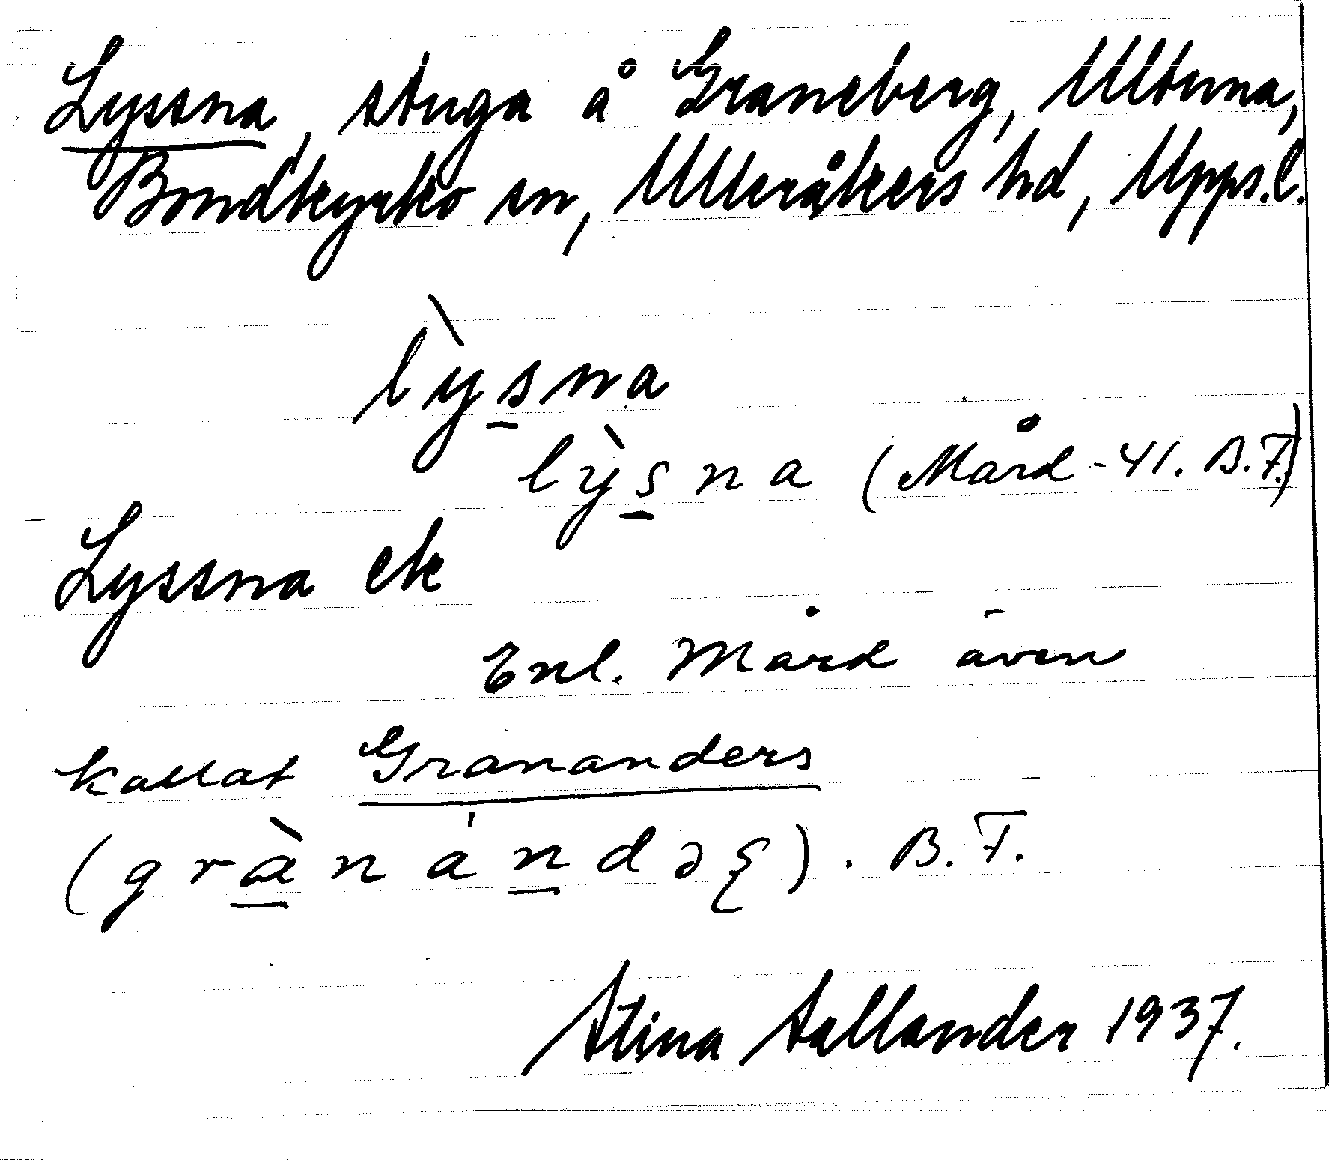 Lyssna, stuga å Graneberg, Ultuna,
Bondkyrko sn, Ulleråkers hd, Upps.l.
lỳs̲na
lỳs̲na (Mård -41. B.F.)
Lyssna ek
Enl. Mård även
kallat Grananders
(grà̲nán̲dəş). B.F.
Stina Sellander 1937.